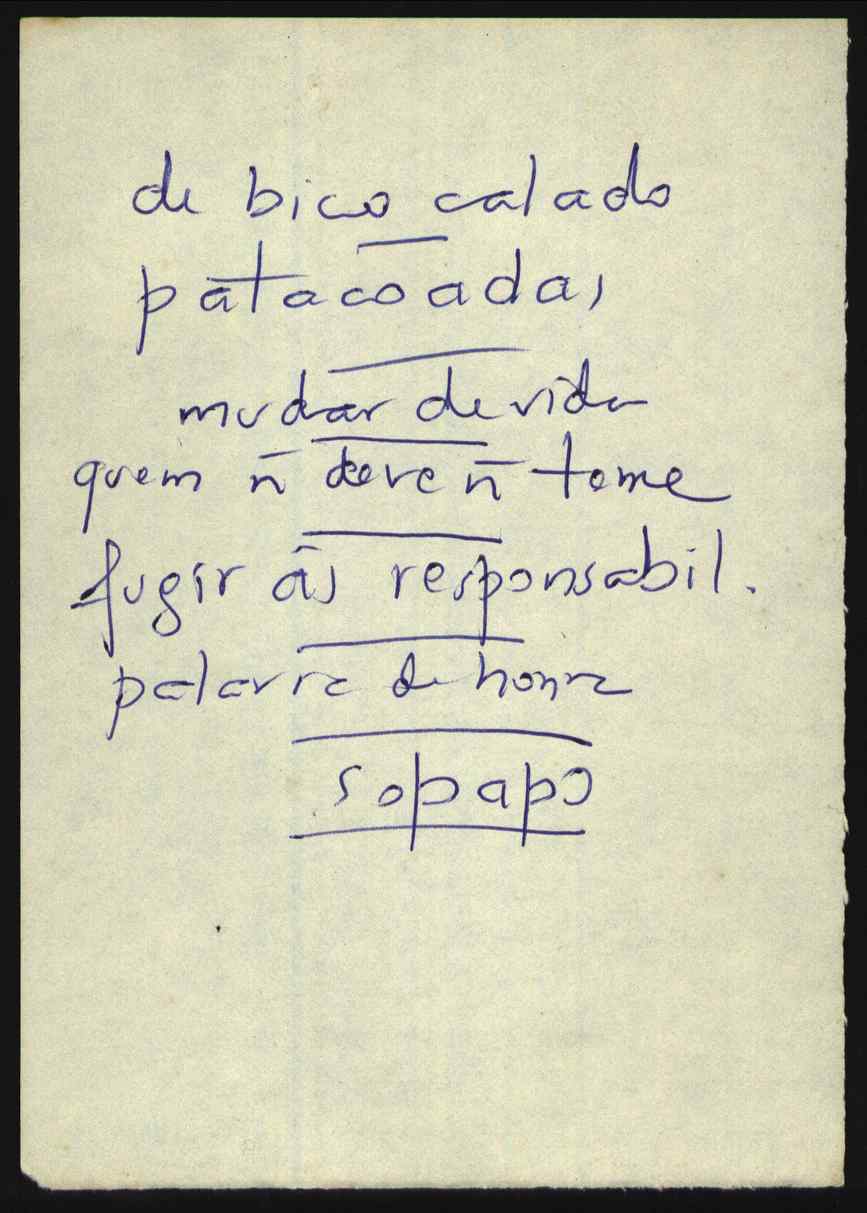 de bico calado
patacoadas
mudar de vida
quem ñ deve ñ teme
fugir às responsabil.
palavra de honra
sopapo